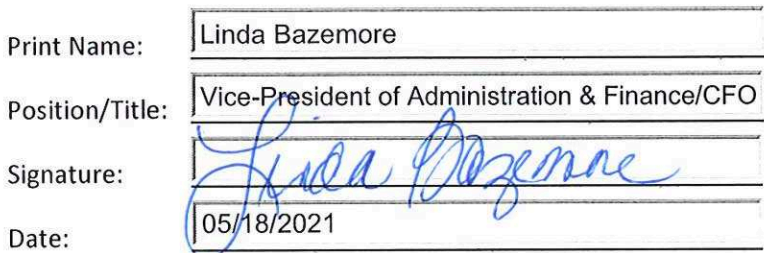 Print Name: Linda Bazemore
Position/Title: Vice-President of Administration & Finance/CFO
Signature: Linda Bazemore
Date: 05/18/2021